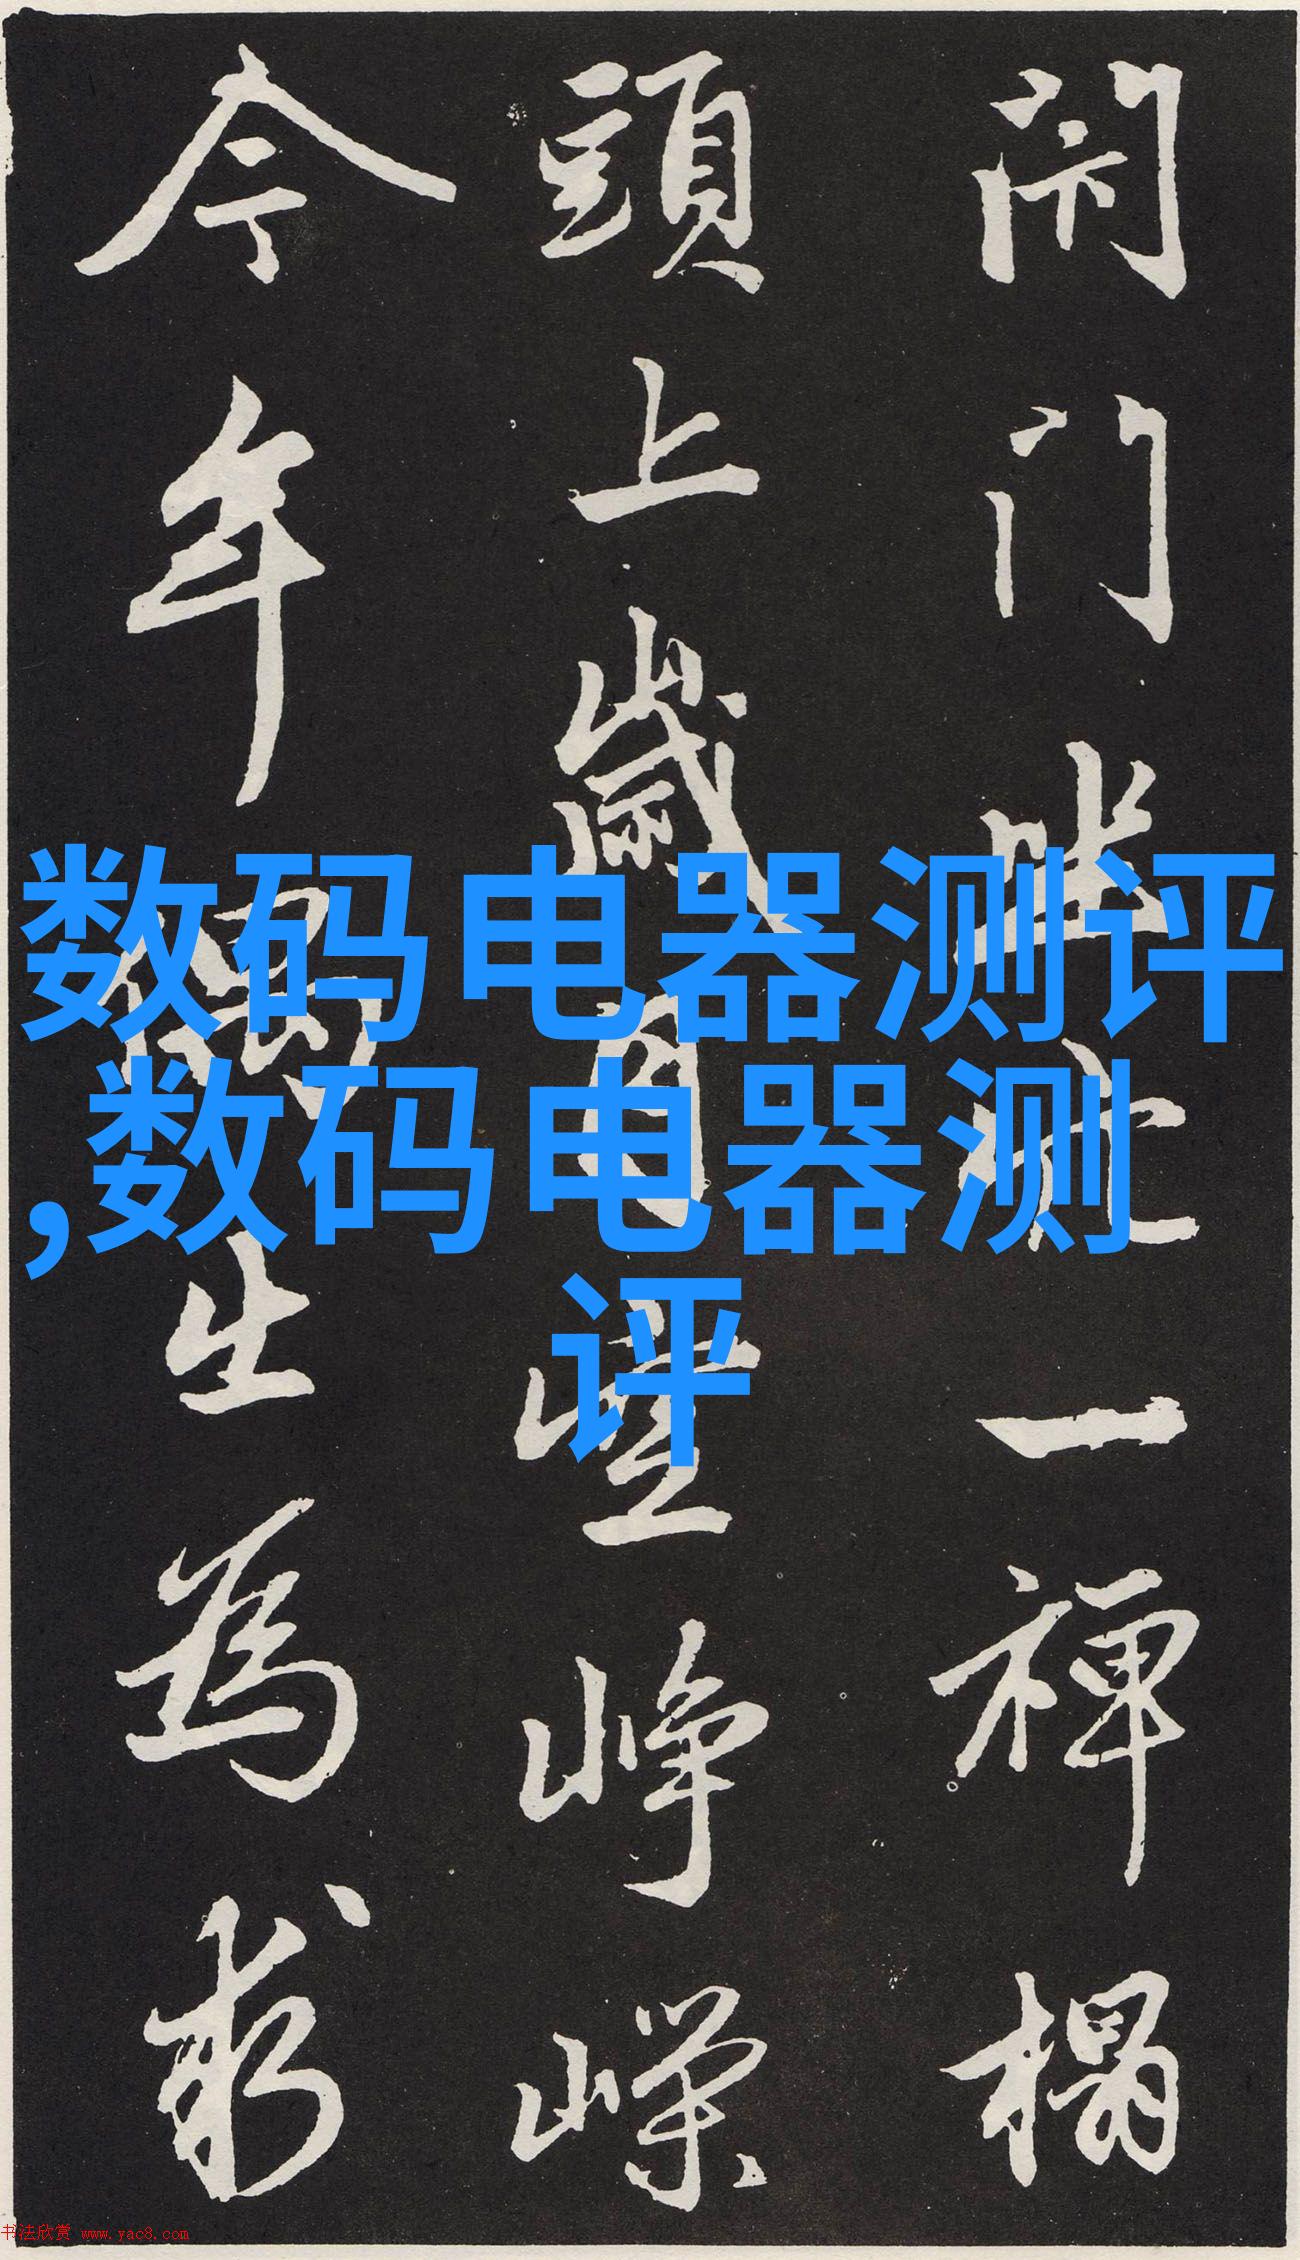 閉門坐穴一禪榻
頭上歲月空崢嶸
今年偶出為求
数码电器测评
,数码电器测
评
书法欣赏 www.yac8.com